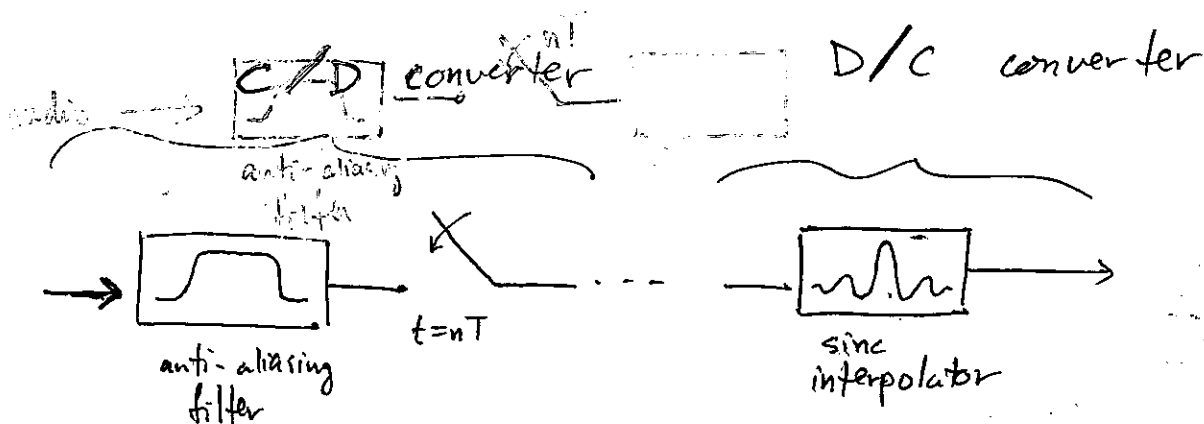 C/D converter
D/C converter
nT
audio
anti-aliasing
filter
t=nT
anti-aliasing
filter
sinc
interpolator